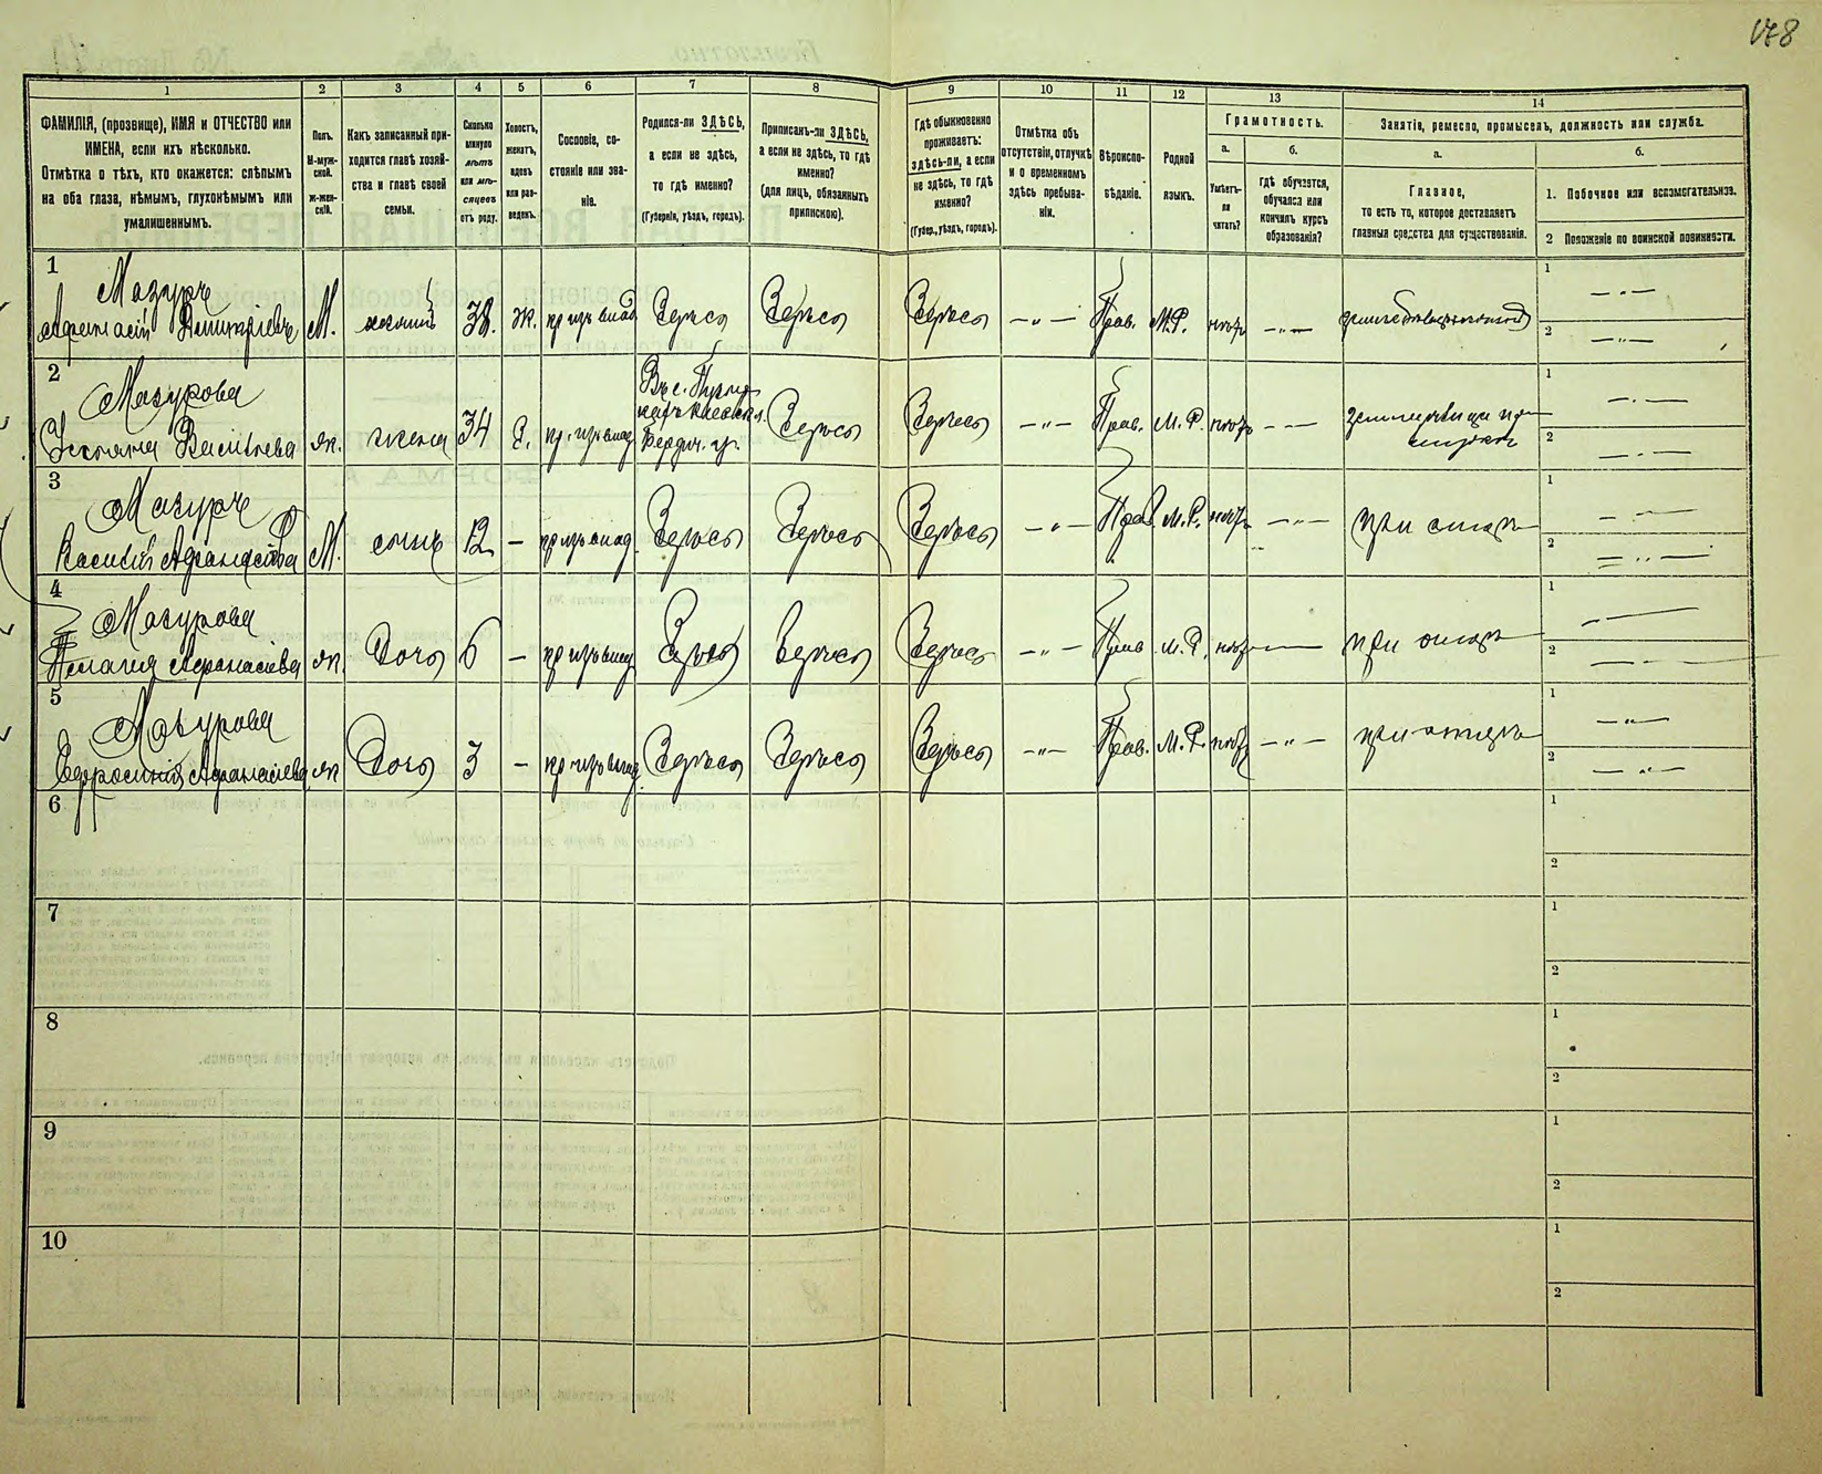 178
1 2 3 4 5 6 7 8 9 10 11 12 13 14
ФАМИЛІЯ, (прозвище), ИМЯ и ОТЧЕСТВО или
ИМЕНА, если ихъ нѣсколько.
Отмѣтка о тѣхъ, кто окажется: слѣпымъ
на оба глаза, нѣмымъ, глухонѣмымъ или
умалишеннымъ.
Полъ.
М-муж-
ской.
ж-жен-
скій.
Какъ записанный при-
ходится главѣ хозяй-
ства и главѣ своей
семьи.
Сколько
минуло
лѣтъ
или мѣ-
сяцевъ
отъ роду.
Холостъ,
женатъ,
вдовъ
или раз-
веденъ.
Сословіе, со-
стояніе или зва-
ніе.
Родился-ли ЗДѢСЬ,
а если не здѣсь,
то гдѣ именно?
(Губернія, уѣздъ, городъ).
Приписанъ-ли ЗДѢСЬ,
а если не здѣсь, то гдѣ
именно?
(для лицъ, обязанныхъ
припискою).
Гдѣ обыкновенно
проживаетъ:
здѣсь-ли, а если
не здѣсь, то гдѣ
именно?
(Губер., уѣздъ, городъ).
Отмѣтка объ
отсутствіи, отлучкѣ
и о временномъ
здѣсь пребыва-
ніи.
Вѣроиспо-
вѣданіе.
Родной
языкъ.
Грамотность.
а.
Умѣетъ-
ли
читать?
б.
Гдѣ обучается,
обучался или
кончилъ курсъ
образованія?
Занятіе, ремесло, промыселъ, должность или служба.
а.
Главное,
то есть то, которое доставляетъ
главныя средства для существованія.
б.
1. Побочное или вспомогательное.
2 Положеніе по воинской повинности.
1
Мазуръ
М. хозяинъ 38. ж. Здѣсь Здѣсь Здѣсь —"— Прав. М.Р. —"—
1 —"—
2 —"—
2
Мазурова
Васильева ж. жена 34 З. Здѣсь Здѣсь —"— Прав. М.Р. —"—
1 —"—
2 —"—
3
Мазуръ
Василій М. сынъ 12 — Здѣсь Здѣсь Здѣсь —"— Прав. М.Р. —"— при отцѣ
1 —"—
2 —"—
4
Мазурова
Афанасіева ж. Дочь 6 — Здѣсь Здѣсь Здѣсь —"— Прав. М.Р. — при отцѣ
1 —
2 —
5
Мазурова
Афанасіева ж Дочь 3 — Здѣсь Здѣсь Здѣсь —"— Прав. М.Р. —"— при отцѣ
1 —"—
2 —"—
6
1
2
7
1
2
8
1
2
9
1
2
10
1
2